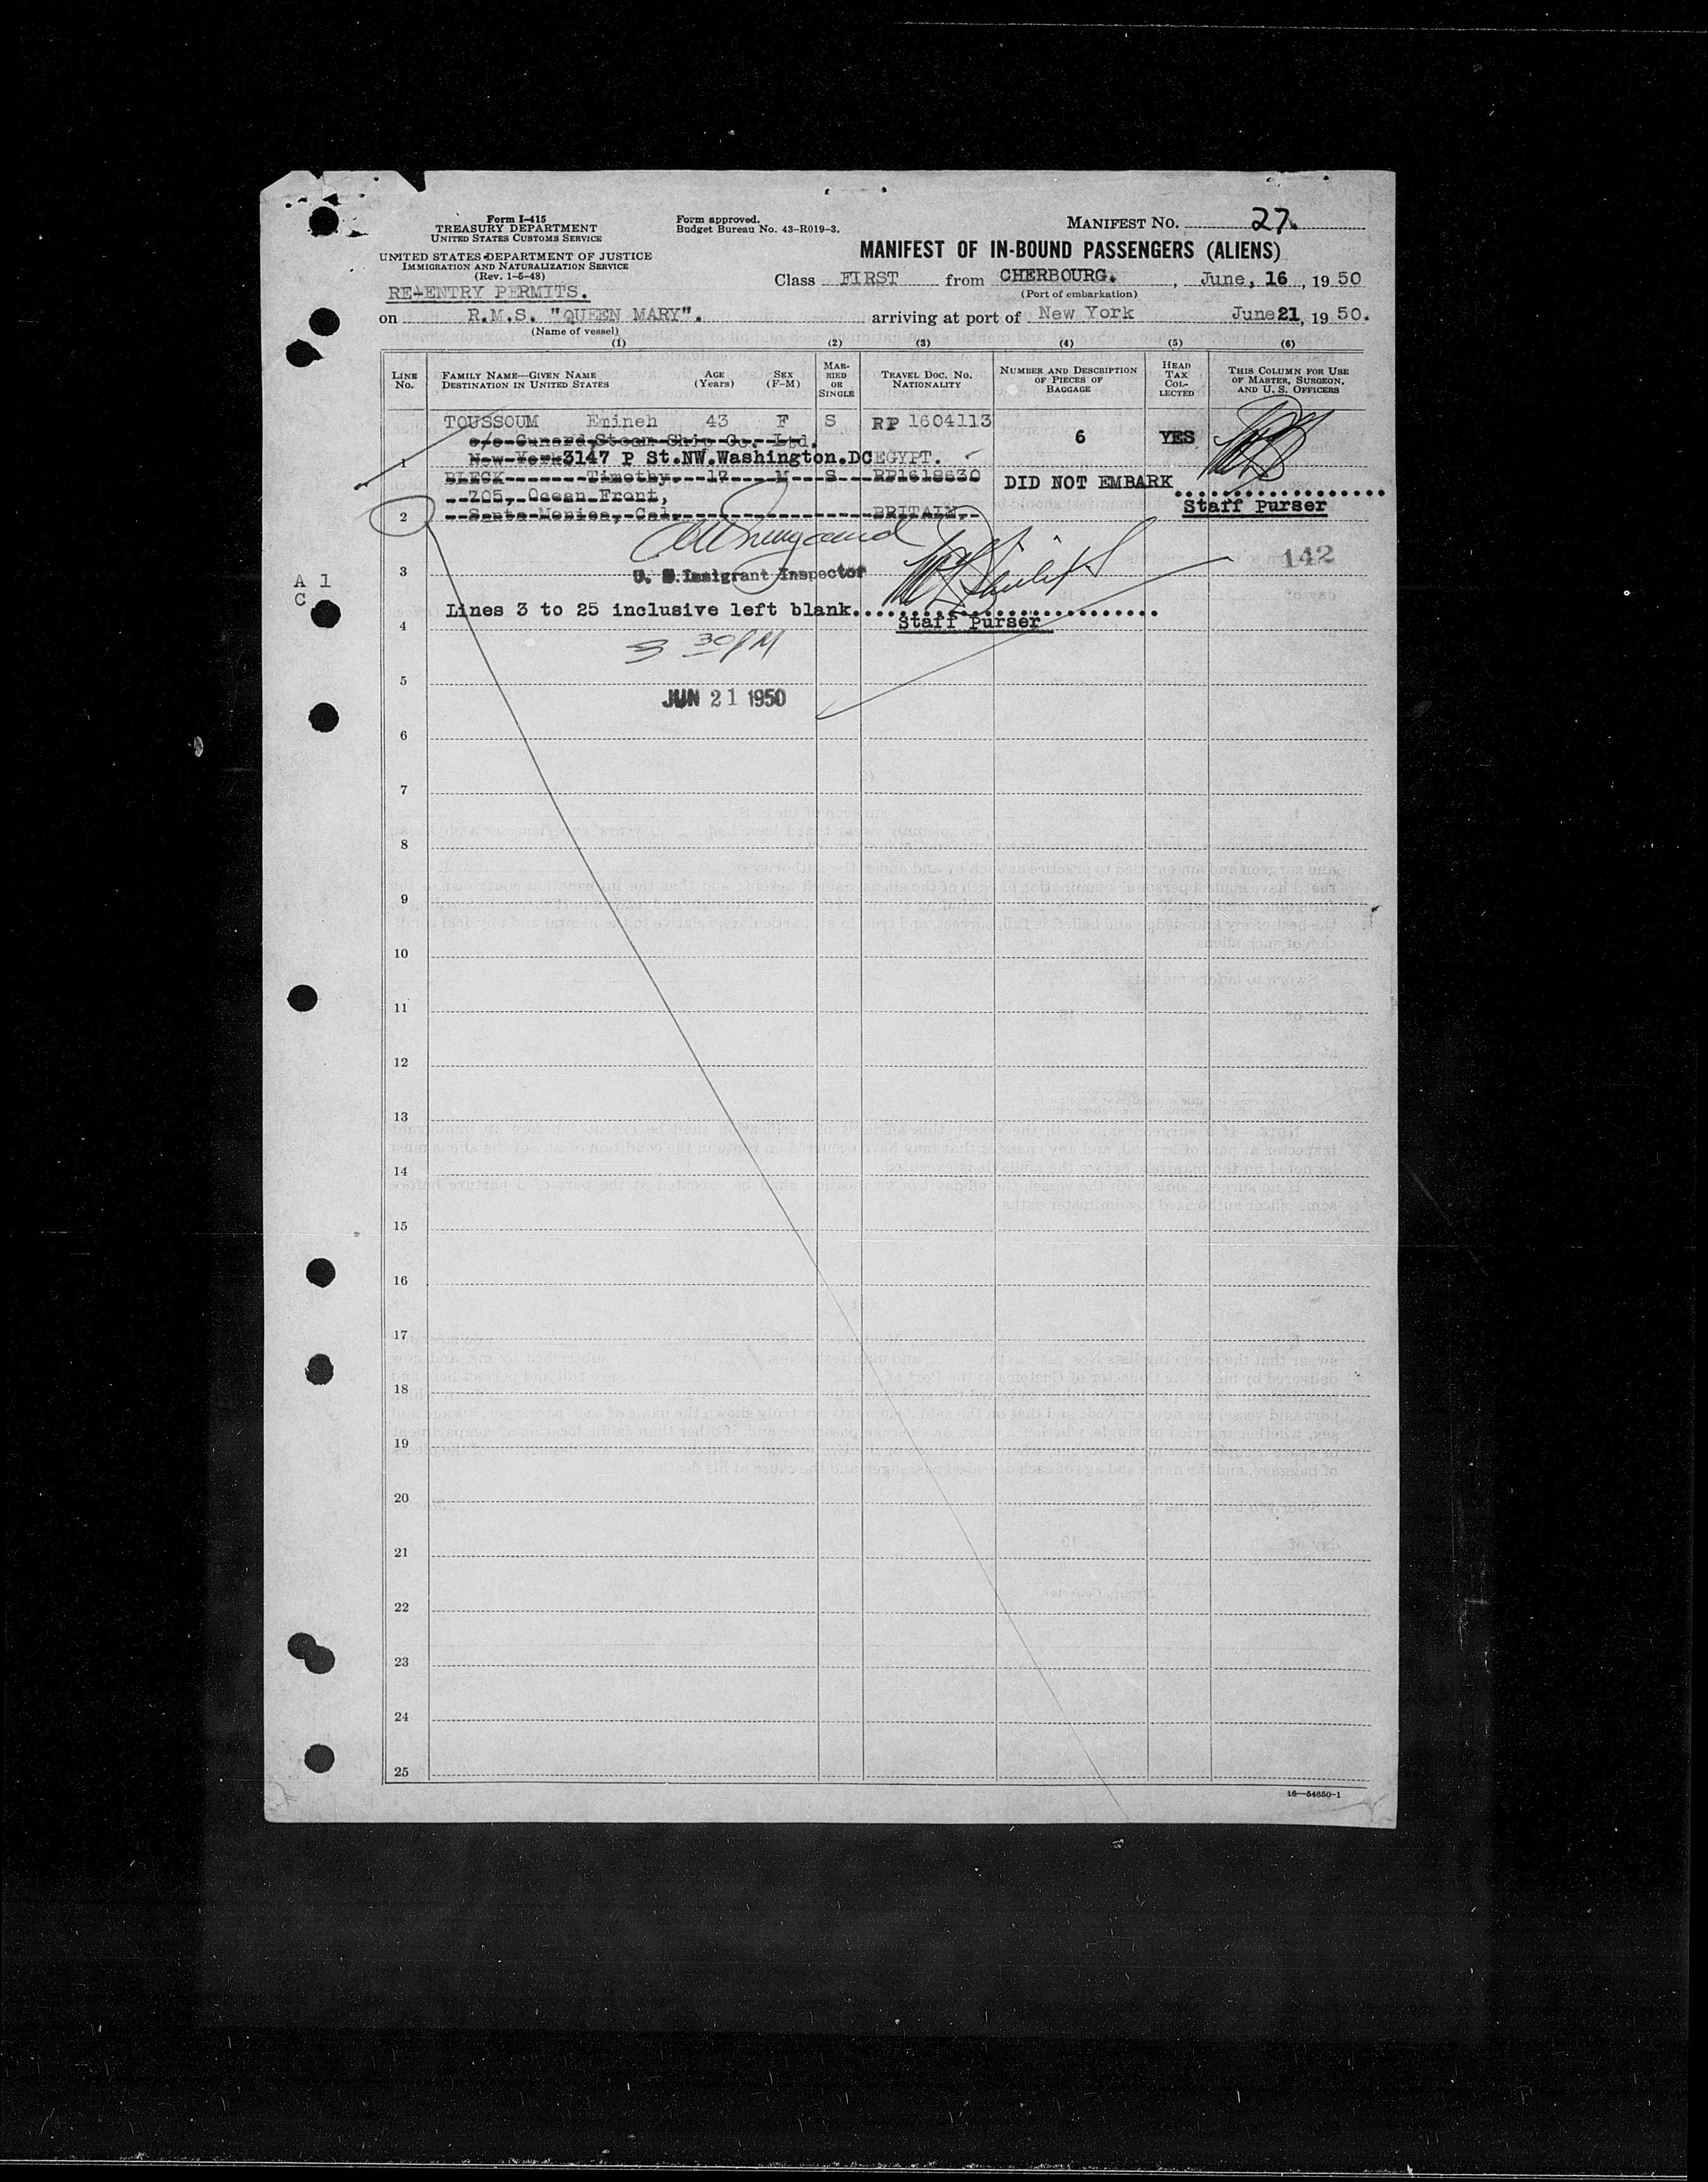 Form I-415
TREASURY DEPARTMENT
UNITED STATES CUSTOMS SERVICE
UNITED STATES DEPARTMENT OF JUSTICE
IMMIGRATION AND NATURALIZATION SERVICE
(Rev. 1-5-48)
Form approved.
Budget Bureau No. 43-R019-3.
MANIFEST NO. 27.
MANIFEST OF IN-BOUND PASSENGERS (ALIENS)
RE-ENTRY PERMITS.
Class FIRST from CHERBOURG. , June, 16 , 19 50
(Port of embarkation)
on R.M.S. "QUEEN MARY". arriving at port of New York June 21, 19 50.
(Name of vessel)
(1) (2) (3) (4) (5) (6)
LINE NO.
FAMILY NAME—GIVEN NAME
DESTINATION IN UNITED STATES
AGE (Years)
SEX (F-M)
MARRIED OR SINGLE
TRAVEL DOC. NO. NATIONALITY
NUMBER AND DESCRIPTION OF PIECES OF BAGGAGE
HEAD TAX COLLECTED
THIS COLUMN FOR USE OF MASTER, SURGEON, AND U. S. OFFICERS
TOUSSOUM Emineh 43 F S RP 1604113
c/o Cunard Steam Ship Co. Ltd. 6 YES
1 New York 3147 P St.NW.Washington.DC EGYPT.
BLECK Timothy. 17 M S RP1618630 DID NOT EMBARK
705, Ocean Front, Staff Purser
2 Santa Monica, Cal. BRITAIN.
142
3 U. S. Immigrant Inspector
A 1
C
Lines 3 to 25 inclusive left blank.
4 Staff Purser
3 30 PM
5
JUN 21 1950
6
7
8
9
10
11
12
13
14
15
16
17
18
19
20
21
22
23
24
25
16—54650-1